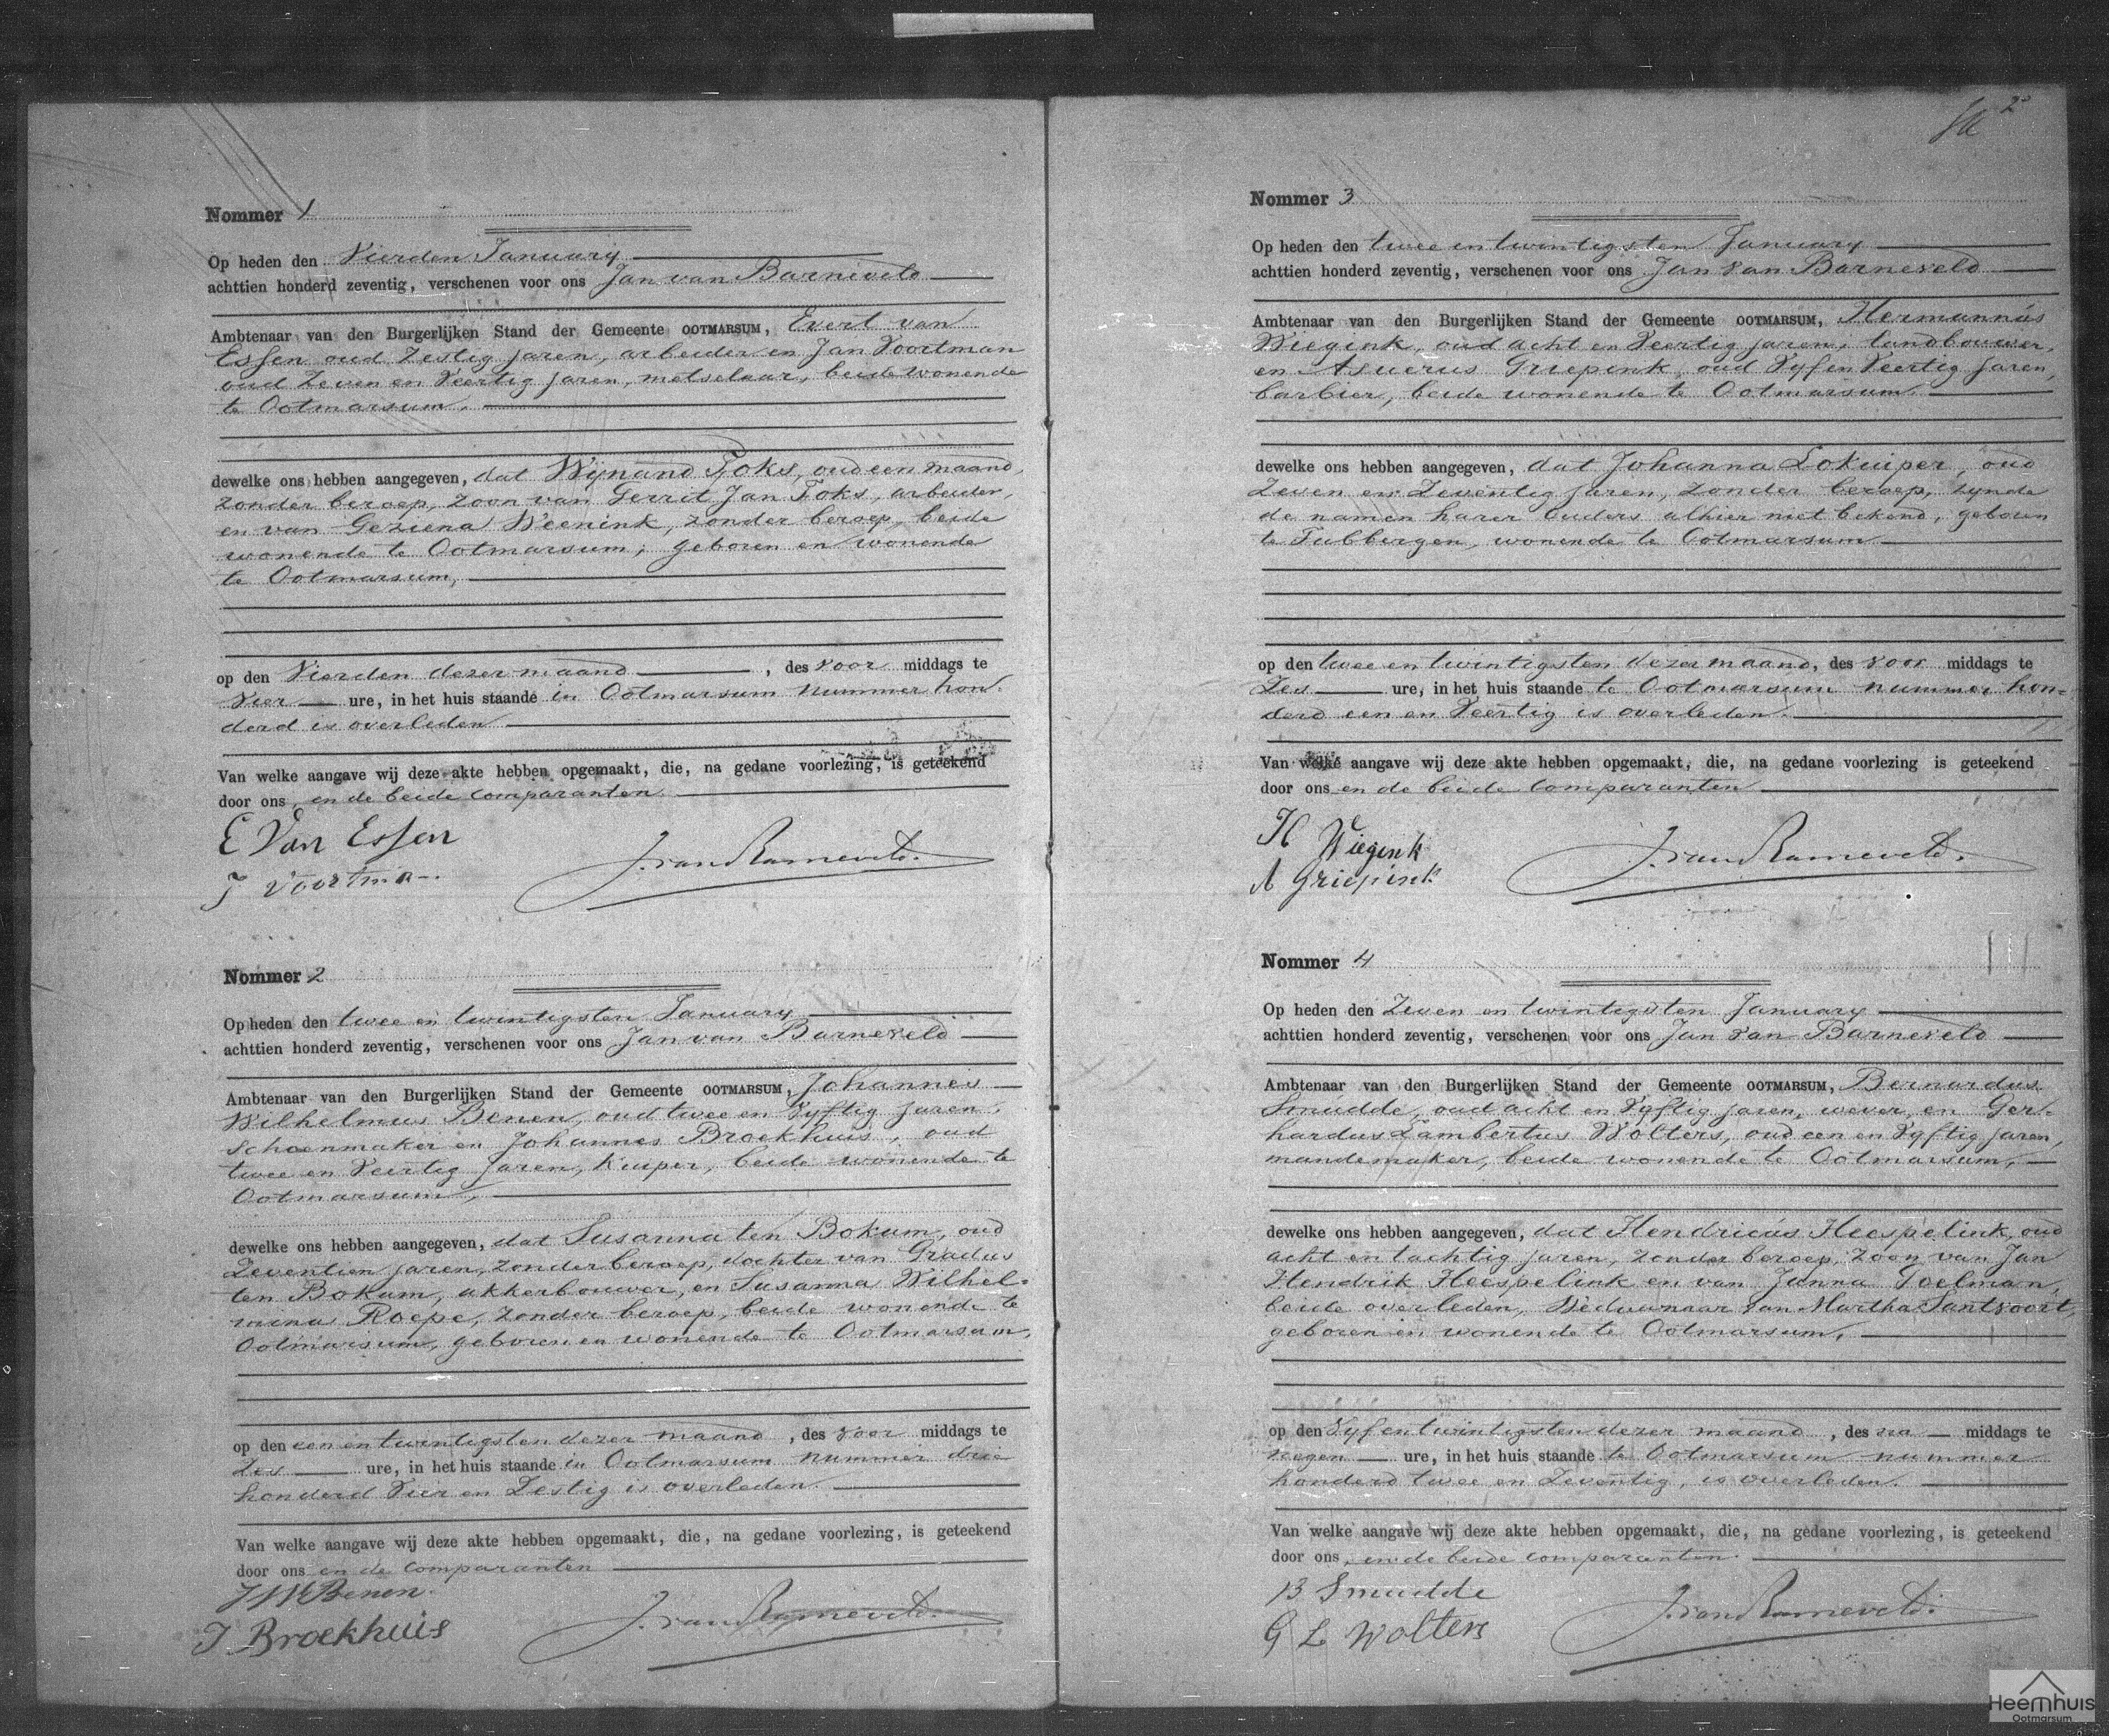 Nommer 1
Op heden den Vierden January
achttien honderd zeventig, verschenen voor ons Jan van Barneveld
Ambtenaar van den Burgerlijken Stand der Gemeente OOTMARSUM, Evert van
Essen oud Zestig jaren, arbeider en Jan Voortman
oud Zeven en Veertig jaren, metselaar, beide wonende
te Ootmarsum.
dewelke ons hebben aangegeven, dat Wynand Foks, oud een maand,
zonder beroep, zoon van Gerrit Jan Foks, arbeider,
en van Geziena Weenink, zonder beroep, beide
wonende te Ootmarsum; geboren en wonende
te Ootmarsum,
op den Vierden dezer maand, des voor middags te
Vier ure, in het huis staande in Ootmarsum nummer hon-
derd is overleden
Van welke aangave wij deze akte hebben opgemaakt, die, na gedane voorlezing, is geteekend
door ons, en de beide comparanten.
E Van Essen
J Voortman
J. van Barneveld.
Nommer 2
Op heden den twee en twintigsten January
achttien honderd zeventig, verschenen voor ons Jan van Barneveld
Ambtenaar van den Burgerlijken Stand der Gemeente OOTMARSUM, Johannes
Wilhelmus Benen, oud twee en Vyftig jaren,
Schoenmaker en Johannes Broekhuis, oud
twee en Veertig jaren, Kuiper, beide wonende te
Ootmarsum,
dewelke ons hebben aangegeven, dat Susanna ten Bokum, oud
Zeventien jaren, zonder beroep, dochter van Gradus
ten Bokum, akkerbouwer, en Susanna Wilhel-
mina Roepe, zonder beroep, beide wonende te
Ootmarsum, geboren en wonende te Ootmarsum,
op den een en twintigsten dezer maand, des voor middags te
Zes ure, in het huis staande in Ootmarsum nummer drie
honderd Vier en Zestig is overleden.
Van welke aangave wij deze akte hebben opgemaakt, die, na gedane voorlezing, is geteekend
door ons en de comparanten
J W Benen.
J. Broekhuis
J. van Barneveld.
2
Nommer 3
Op heden den twee en twintigsten January
achttien honderd zeventig, verschenen voor ons Jan van Barneveld
Ambtenaar van den Burgerlijken Stand der Gemeente OOTMARSUM, Hermannus
Wiegink, oud acht en Veertig jaren, landbouwer,
en Asuerus Griepink, oud Vyf en Veertig jaren,
barbier, beide wonende te Ootmarsum.
dewelke ons hebben aangegeven, dat Johanna Lokuiper, oud
Zeven en Zeventig jaren, zonder beroep, zynde
de namen harer Ouders alhier niet bekend, geboren
te Tubbergen, wonende te Ootmarsum
op den twee en twintigsten dezer maand, des voor middags te
Zes ure, in het huis staande te Ootmarsum nummer hon-
derd een en Veertig is overleden.
Van welke aangave wij deze akte hebben opgemaakt, die, na gedane voorlezing is geteekend
door ons en de beide Comparanten
H Wiegink
A Griepink
J. van Barneveld.
Nommer 4
Op heden den Zeven en twintigsten January
achttien honderd zeventig, verschenen voor ons Jan van Barneveld
Ambtenaar van den Burgerlijken Stand der Gemeente OOTMARSUM, Bernardus
Smudde, oud acht en Vyftig jaren, wever, en Ger-
hardus Lambertus Wolters, oud een en Vyftig jaren,
mandemaker, beide wonende te Ootmarsum,
dewelke ons hebben aangegeven, dat Hendricus Heespelink, oud
acht en tachtig jaren, zonder beroep, zoon van Jan
Hendrik Heespelink en van Janna Poelman,
beide overleden, Weduwnaar van Martha Santvoort,
geboren en wonende te Ootmarsum,
op den Vyf en twintigsten dezer maand, des na middags te
Negen ure, in het huis staande te Ootmarsum nummer
honderd twee en Zeventig, is overleden.
Van welke aangave wij deze akte hebben opgemaakt, die, na gedane voorlezing, is geteekend
door ons, en de beide comparanten.
B Smudde
G L Wolters
J. van Barneveld.
Heemhuis
Ootmarsum